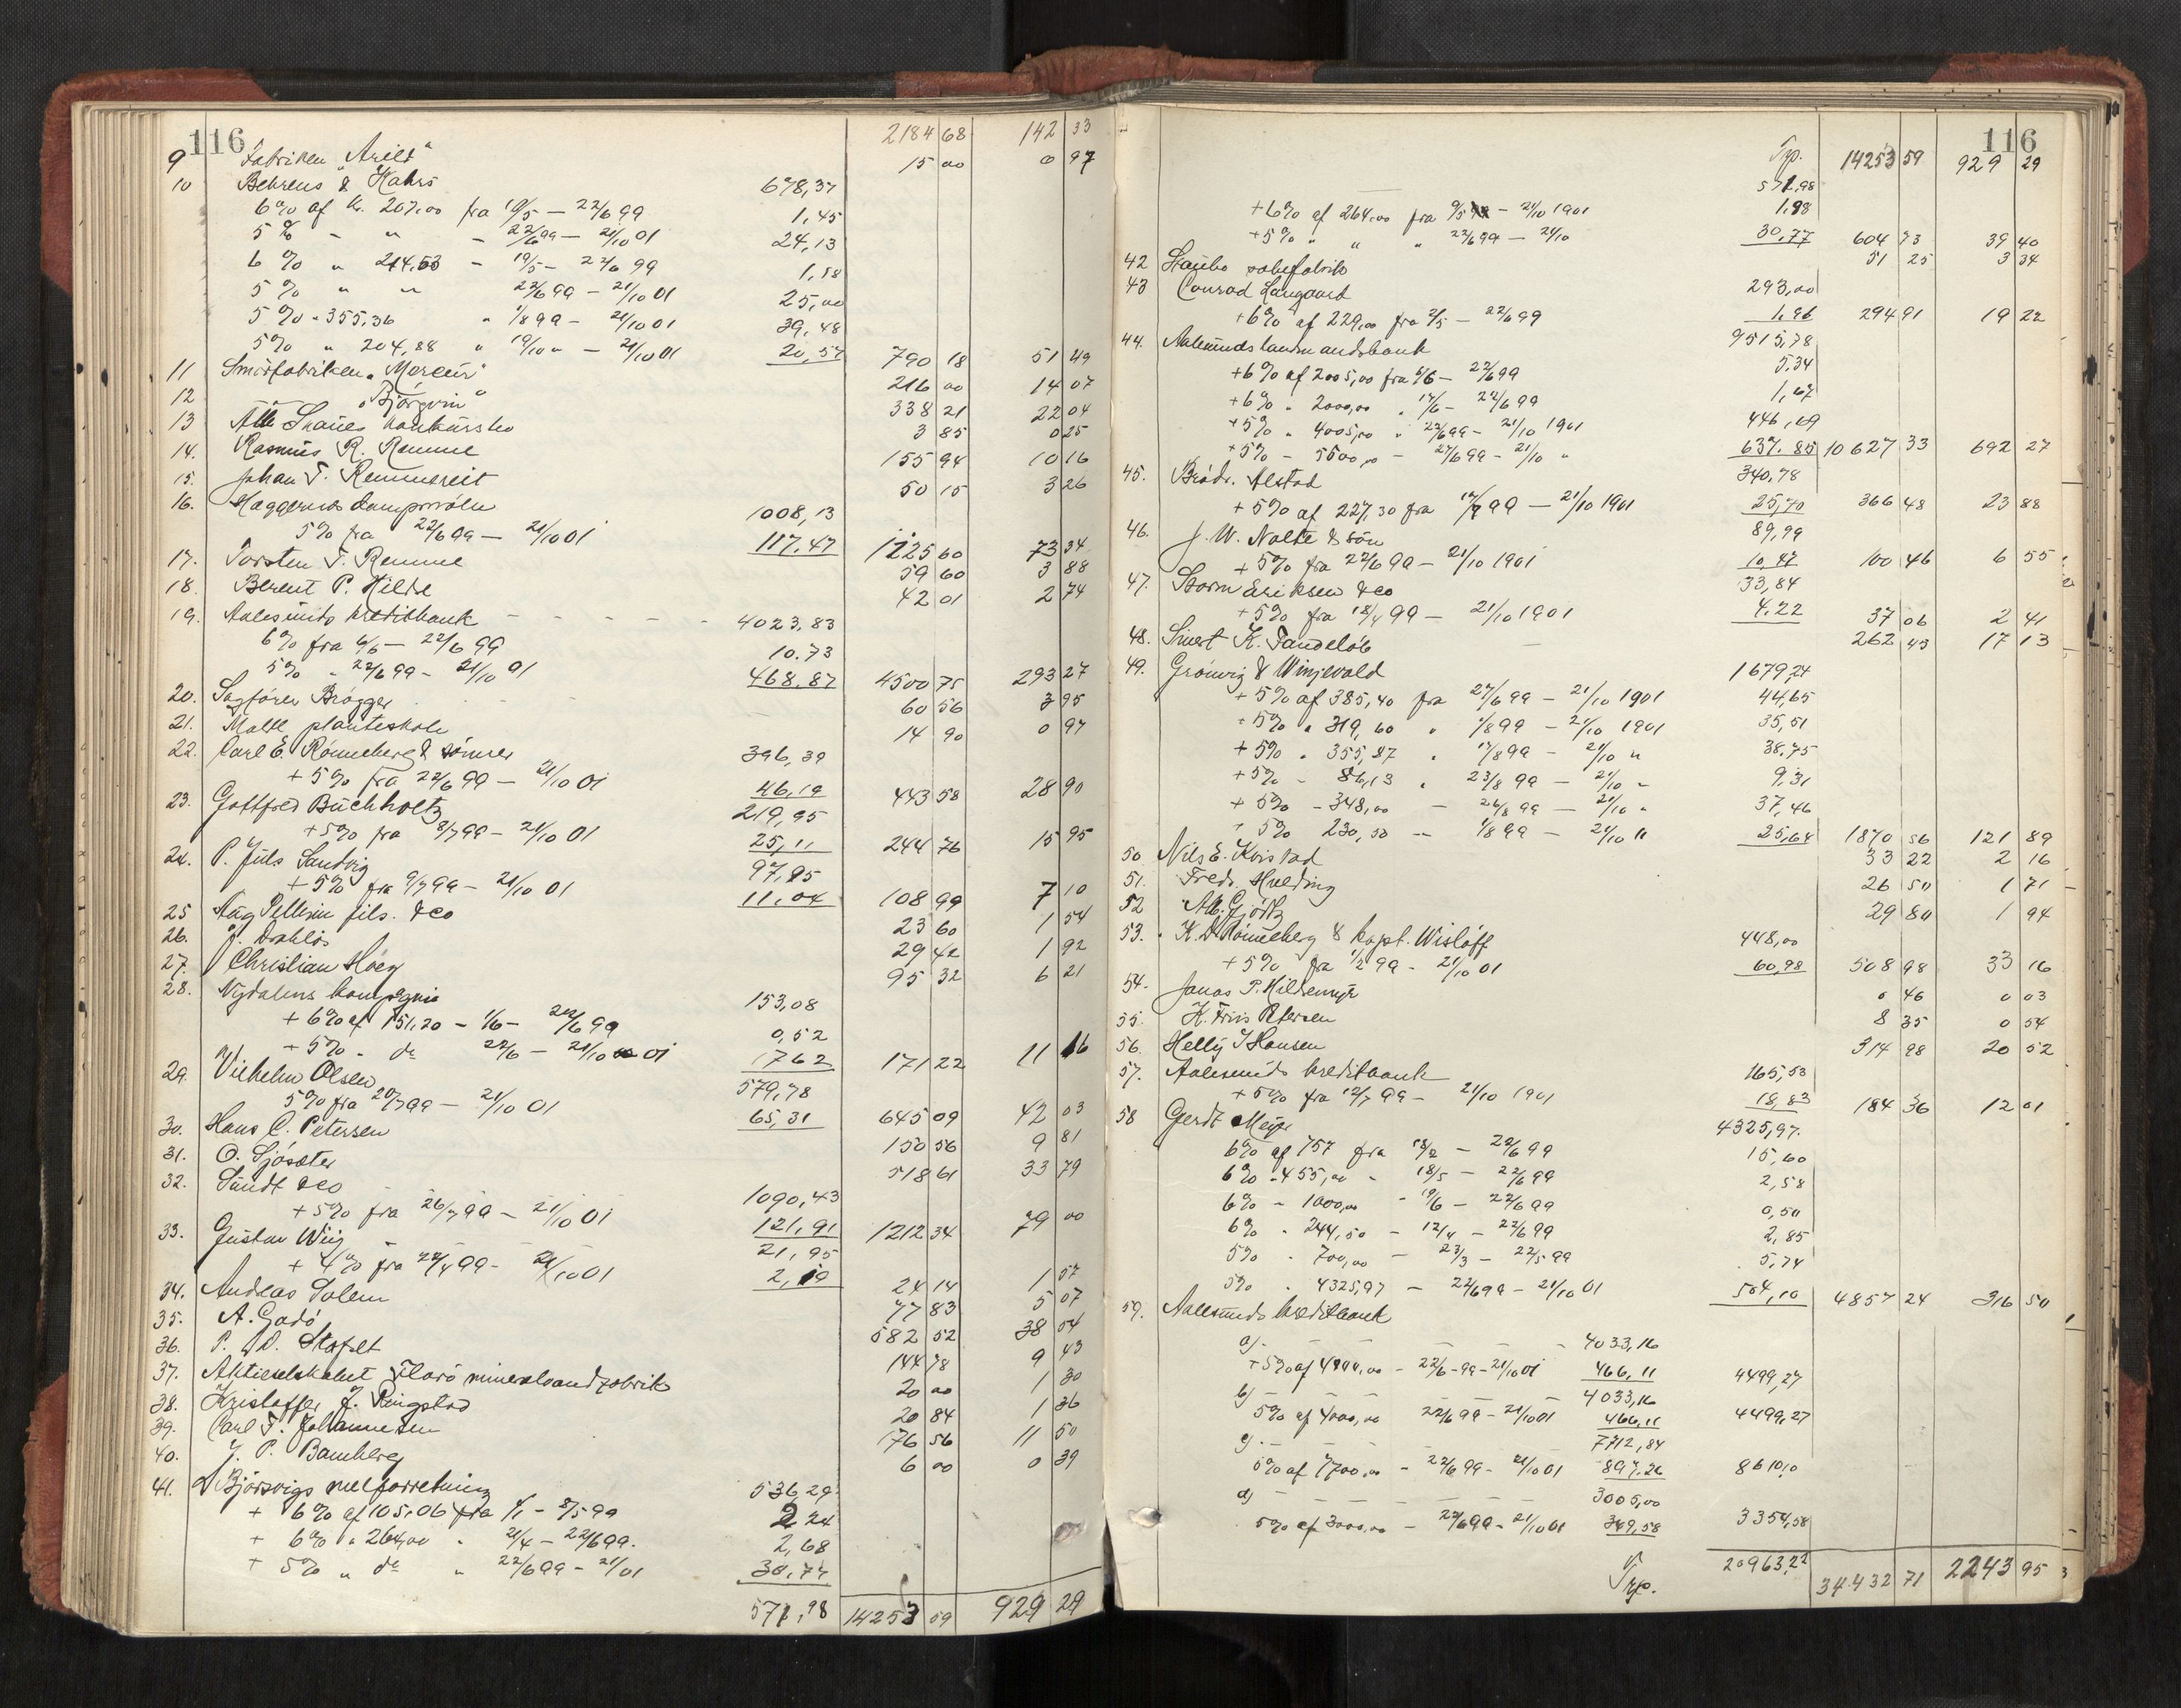 116
2184 68 142 33
9 Fabriken "Arild" 15 00 0 97
10 Behrens & Kahrs 678,37
6% af kr. 267,00 fra 19/5 — 22/6 99 1,45
5% " " - 22/6 99 — 21/10 01 24,13
6% " 214,53 - 19/5 - 22/6 99 1,58
5% " " 22/6 99 - 21/10 01 25,00
5% " 355,36 " 1/8 99 - 21/10 01 39,48
5% " 204,88 " 19/10 " — 21/10 01 20,57 790 18 51 49
11 Smörfabriken "Mercur" 216 00 14 07
12 — " — "Björgvin" 338 21 22 04
13 Skaues konkursbo 3 85 0 25
14. Rasmus R. Remme 155 94 10 16
15. Johan T. Remmereit 50 15 3 26
16. Vaggernes dampmölle 1008,13
5% fra 22/6 99 — 21/10 01 117,47 1125 60 73 34
17. Torsten T. Remme 59 60 3 88
18. Berent P. Hilde 42 01 2 74
19. Aalesunds kreditbank 4023,83
6% fra 6/6 — 22/6 99 10.73
5% " 22/6 99 - 21/10 01 468,87 4500 75 293 27
20. Sagförer Brögger 60 56 3 95
21. Molde planteskole 14 90 0 97
22. Carl E. Rönneberg & sönner 396,39
+ 5% fra 22/6 99 — 21/10 01 46,19 443 58 28 90
23. Gottfred Buchholtz 219,95
+ 5% fra 8/7 99 - 21/10 01 25,11 244 76 15 95
24. P. Juls Sandvig 97,95
+ 5% fra 9/7 99 - 21/10 01 11.04 108 99 7 10
25 Aug Pellerin fils. & co 23 60 1 54
26. J. Dahles 29 42 1 92
27. Christian Höeg 95 32 6 21
28. Nydalens kompagni 153,08
+ 6% af 151,20 - 1/6 - 22/6 99 0,52
+ 5% " do 22/6 - 21/10 01 17 62 171 22 11 16
29. Vilhelm Olsen 579,78
5% fra 20/7 99 — 21/10 01 65,31 645 09 42 03
30. Hans C. Petersen 150 56 9 81
31. O. Sjösæter 518 61 33 79
32. Sundt & co 1090,43
+ 5% fra 26/7 99 — 21/10 01 121,91 1212 34 79 00
33. Gustav Wiig 21,95
+ 4% fra 22/4 99 - 21/10 01 2,19 24 14 1 57
34. Andreas Solem 77 83 5 07
35. A. Gadö 582 52 38 04
36. P. D. Stafset 144 78 9 43
37. Aktieselskabet Florö mineralvandfabrik 20 00 1 30
38. Kristoffer J. Ringstad 20 84 1 36
39. Carl F. Johannesen 176 56 11 50
40. J. P. Bamberg 6 00 0 39
41. Björsvigs melforretning 536,29
+ 6% af 105,06 fra 1/1 - 8/5 99 2 24
+ 6% " 264,00 " 21/4 - 22/6 99. 2,68
+ 5% " do " 22/6 99 - 21/01 30,77
571,98 14253 59 929 29
116
Trp. 14253 59 929 29
571,98
+ 6% af 264,00 fra 9/5 - 21/10 1901 1,98
+ 5% " " " 22/6 99 — 21/10 30,77 604 73 39 40
42 Staubo sobefabrik 51 25 3 34
43 Conrad Langaard 293,00
+ 6% af 229,00 fra 2/5 — 22/6 99 1,96 294 91 19 22
44. Aalesunds landmandsbank 9515,78
+ 6% af 2005,00 fra 6/6 — 22/6 99 5,34
+ 6% " 2000,00 " 17/6 - 22/6 99 1,67
+ 5% " 4005,00 " 22/6 99 - 21/10 1901 446,69
+ 5% - 5500,00 - 27/6 99 - 21/10 " 637.85 10 627 33 692 27
45. Brödr. Alstad 340,78
+ 5% af 227,30 fra 14/7 99 — 21/10 1901 25,70 366 48 23 88
46. J. W. Nolte & sön 89,99
+ 5% fra 22/6 99 - 21/10 1901 10,47 100 46 6 55
47. Storm Eriksen & co 33,84
+ 5% fra 18/4 99 — 21/10 1901 4.22 37 06 2 41
48. Sivert K. Tandelös 262 45 17 13
49. Grönvig & Winjevold 1679,24
+ 5% af 385,40 fra 27/6 99 — 21/10 1901 44,65
+ 5% " 319,60 " 1/8 99 - 21/10 1901 35,51
+ 5% " 355,27 " 17/8 99 - 21/10 " 38,75
+ 5% - 86,13 " 23/8 99 — 21/10 " 9.31
+ 5% - 348,00 — 26/8 99 — 21/10 " 37,46
+ 5% 230,50 — 1/8 99 — 21/10 11 25,64 1870 56 121 89
50 Nils E. Kvistad 33 22 2 16
51. Fredr. Hvelding 26 50 1 71
52 Alb. Gjörtz 29 80 1 94
53. K. D. Rönneberg & kapt. Wislöff 448,00
+ 5% fra 1/2 99 - 21/10 01 60,98 508 98 33 16
54. Jonas P. Hildemyr 0 46 0 03
55. K. Friis Petersen 8 35 0 54
56. Helly J Hansen 314 98 20 52
57. Aalesunds kreditbank 165,53
+ 5% fra 12/7 99 - 21/10 1901 18,83 184 36 12 01
58 Gerdt Meyer 4325,97.
6% af 757 fra 18/2 — 22/6 99 15,60
6% - 455,00 - 18/5 — 22/6 99 2,58
6% - 1000,00 - 19/6 - 22/6 99 0,50
6% " 244,50 - 12/4 - 22/6 99 2,85
5% " 700,00 — 23/3 — 22/5 99 5,74
5% " 4325,97 — 22/6 99 - 21/10 01 504,10 4857 24 316 50
59. Aalesunds kreditbank
a). — — — 4033,16
+ 5% af 4000,00 - 22/6 - 99 - 21/10 01 466,11 4499,27
b) — — — 4033,16
5% af 4000,00 22/6 99 - 21/10 01 466,11 4499,27
c). — — — 7712,84
5% af 7700,00 - 22/6 99 - 21/10 01 897,26 8610,10
d) — — — 3005,00
5% af 3000,00 - 22/6 99 - 21/10 01 349,58 3354,58
Trp. 20963,22 34432 71 2243 95